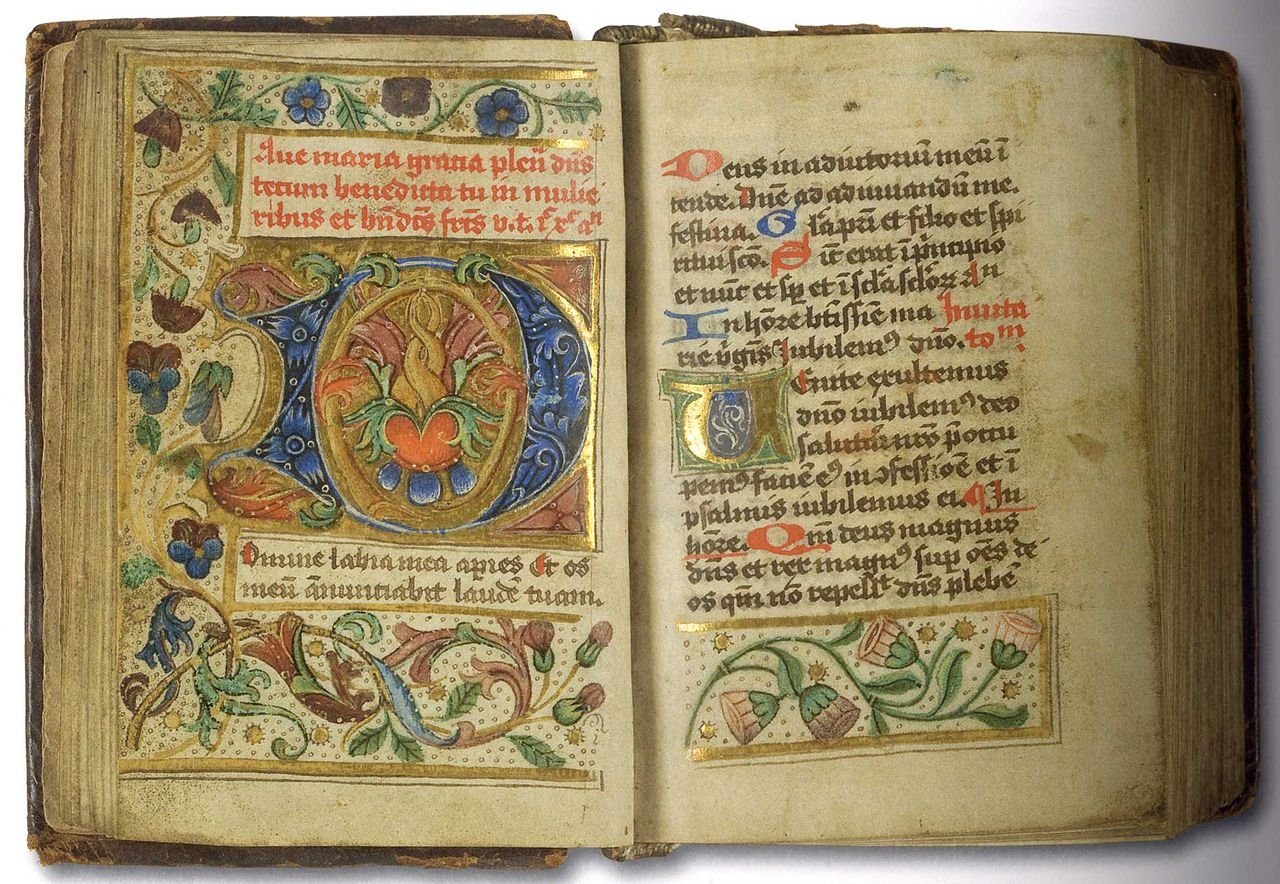 Aue maria gracia pleñ dñs
tecum benedicta tu in mulie
ribus et bñdcs̃ frs̃ v.t.
Domine labia mea apies Et os
meū añnunciabit laudē tuam.
Deus in adiutoriū meū ī
tende. Dñe ad adiuuandū me.
festina. Gla pr̄i et filio et spi
ritui sco. Sic̄ erat ī principio
et nūc et sp̄ et ī scl̄a sclo᷑ꝝ An
In hōre bt̄issiē ma Inuita
rie v̄gīs iubilemꝰ dn̄o. to m.
Uenite exultemus
dn̄o iubilemꝰ deo
salutari nr̄o p̄occu
pemꝰ faciē eꝰ in ꝯfessiōe et ī
psalmis iubilemus ei. In
hōre. Qm̄ deus magnus
dn̄s et rex magnꝰ sup̄ oēs de
os qm̄ nō repellt dn̄s plebē